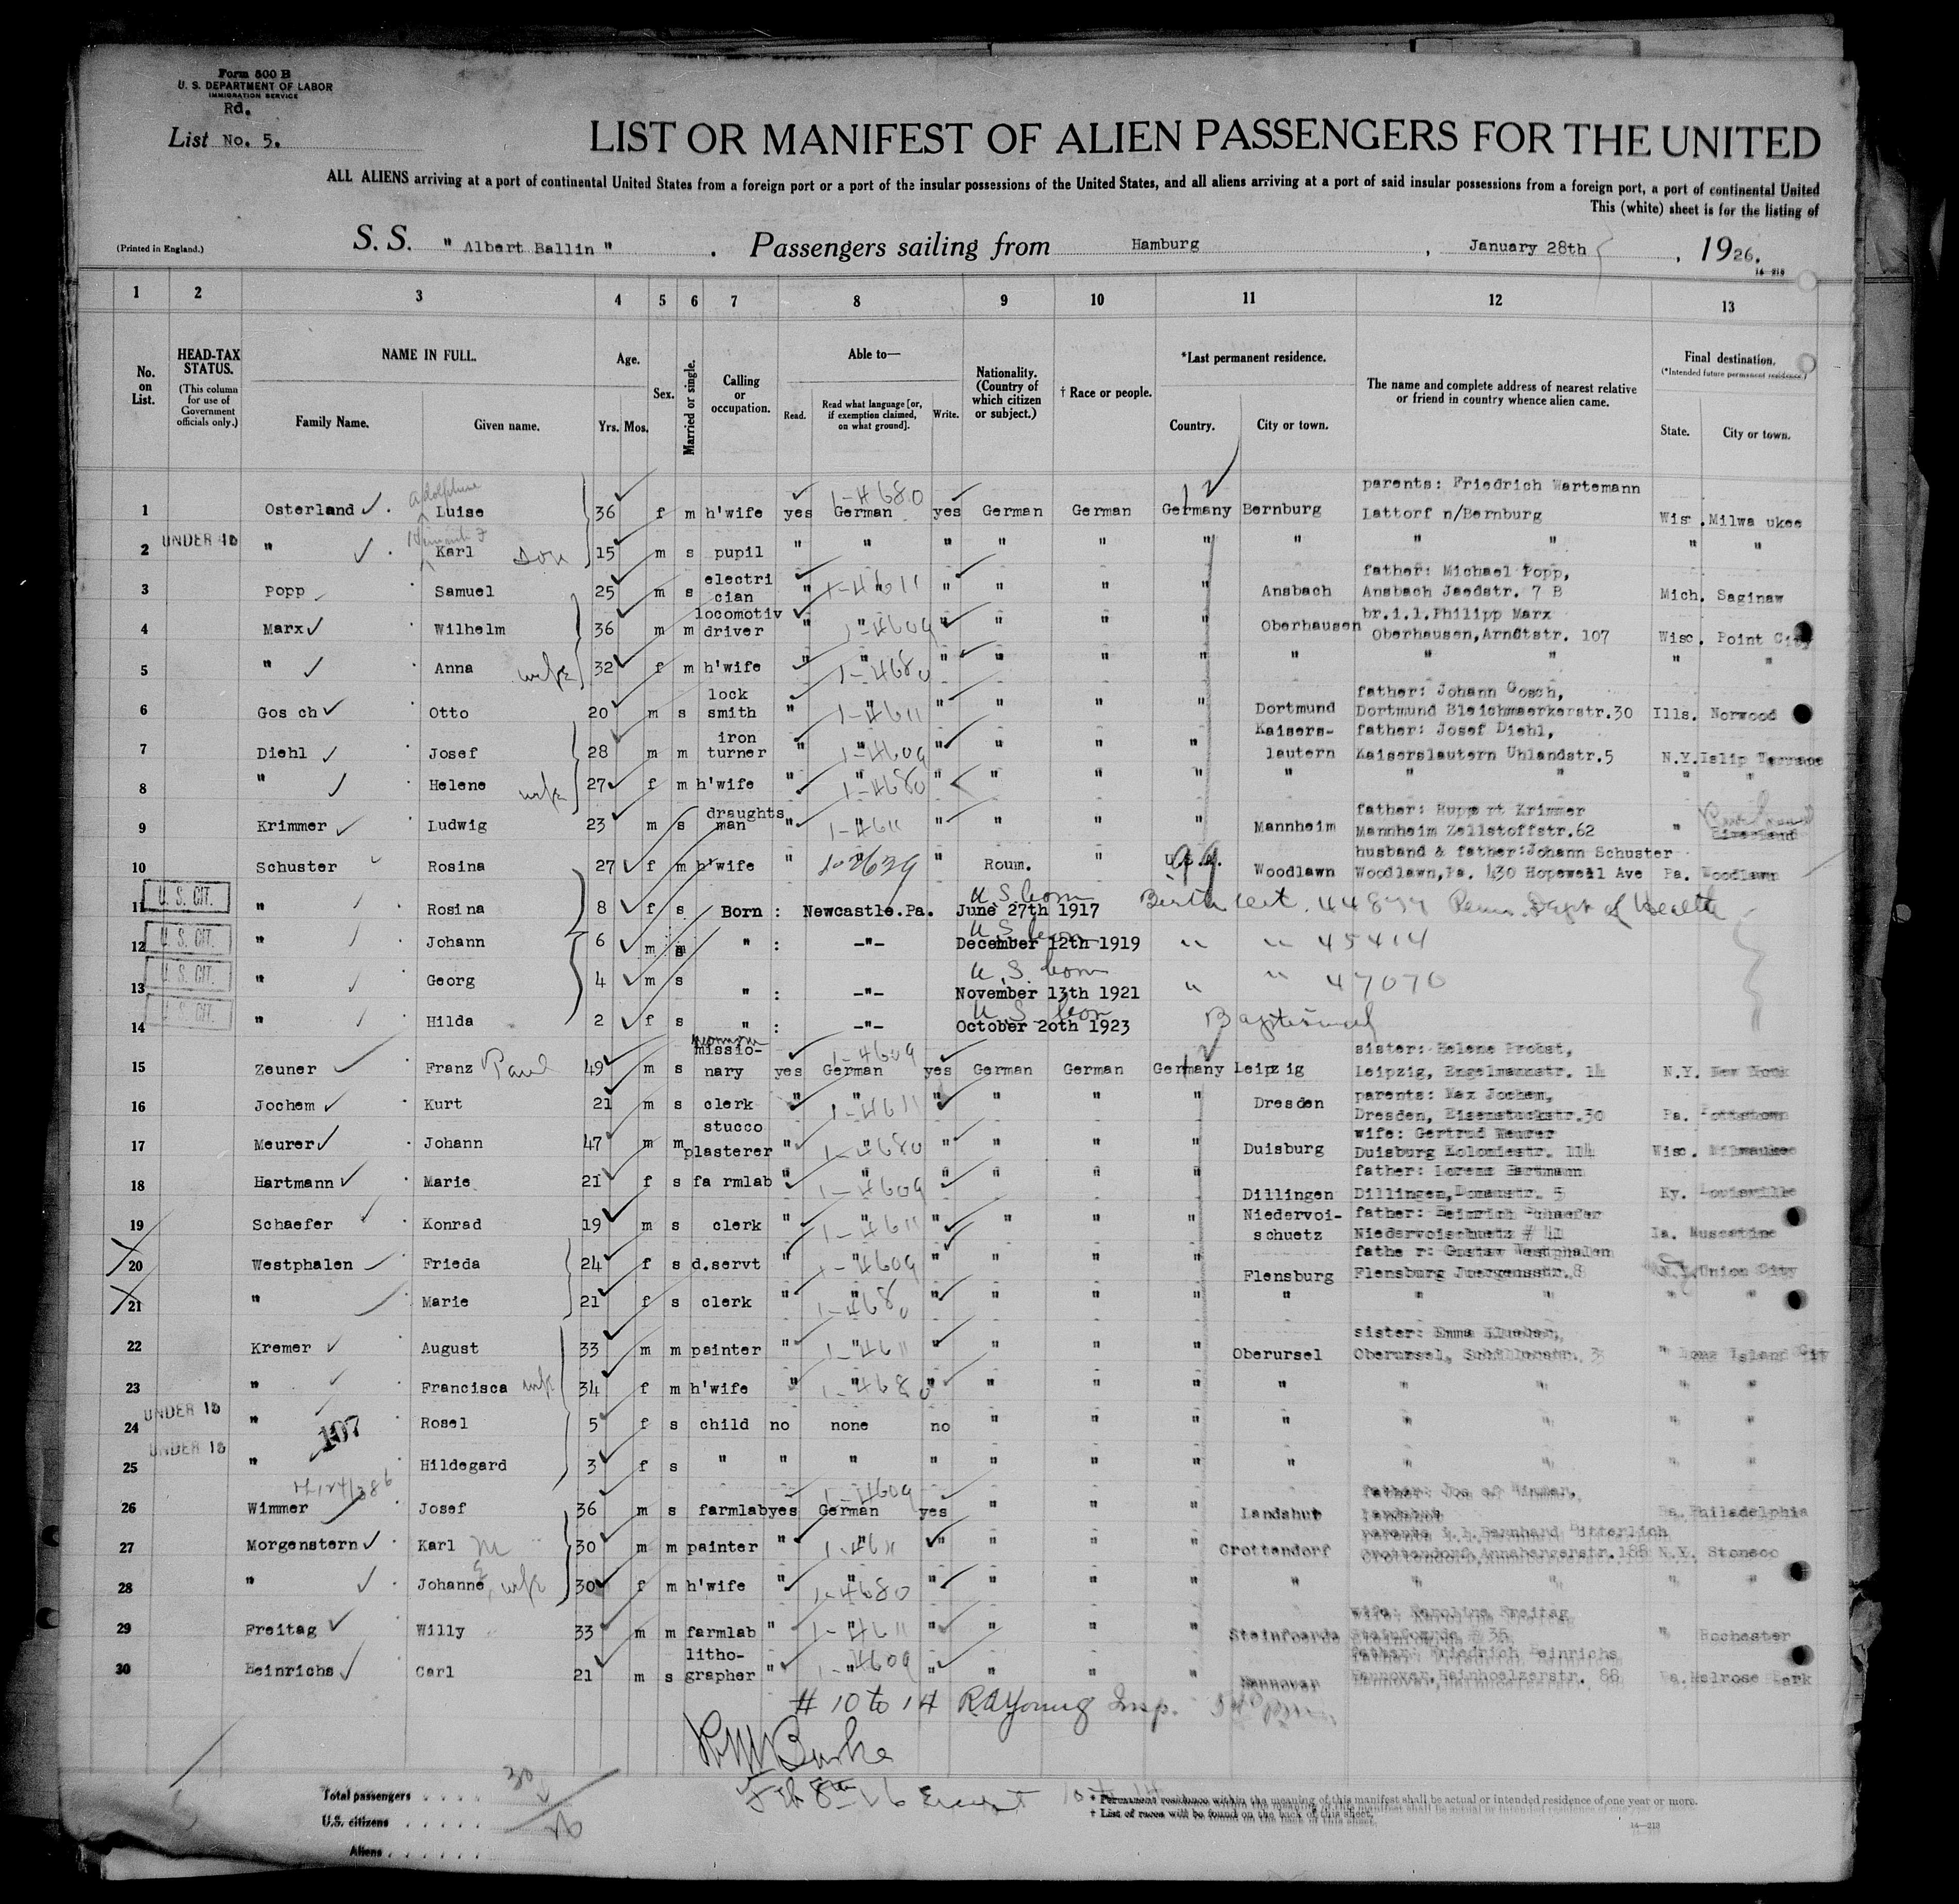 Form 500 B
U. S. DEPARTMENT OF LABOR
IMMIGRATION SERVICE
Rd.
List No. 5.
LIST OR MANIFEST OF ALIEN PASSENGERS FOR THE UNITED
ALL ALIENS arriving at a port of continental United States from a foreign port or a port of the insular possessions of the United States, and all aliens arriving at a port of said insular possessions from a foreign port, a port of continental United
This (white) sheet is for the listing of
(Printed in England.) S. S. " Albert Ballin " . Passengers sailing from Hamburg , January 28th , 1926.
1 2 3 4 5 6 7 8 9 10 11 12 13
No. on List. HEAD-TAX STATUS. (This column for use of Government officials only.) NAME IN FULL. Family Name. Given name. Age. Yrs. Mos. Sex. Married or single. Calling or occupation. Able to— Read. Read what language [or, if exemption claimed, on what ground]. Write. Nationality. (Country of which citizen or subject.) † Race or people. *Last permanent residence. Country. City or town. The name and complete address of nearest relative or friend in country whence alien came. Final destination. (*Intended future permanent residence.) State. City or town.
Adolphine 1-4680 parents: Friedrich Wartemann
1 Osterland Luise 36 f m h'wife yes German yes German German Germany Bernburg Lattorf n/Bernburg Wis. Milwa ukee
2 UNDER 16 " Karl son 15 m s pupil " " " " " " " " " " "
electri father: Michael Popp,
3 Popp Samuel 25 m s cian " " 1-4611 " " " " Ansbach Ansbach Jaedstr. 7 B Mich. Saginaw
locomotiv br.i.l.Philipp Marx
4 Marx Wilhelm 36 m m driver " " 1-4609 " " " " Oberhausen Oberhausen,Arndtstr. 107 Wisc. Point City
5 " Anna wife 32 f m h'wife " " 1-4680 " " " " " " " " "
lock father: Johann Gosch,
6 Gos ch Otto 20 m s smith " " 1-4611 " " " " Dortmund Dortmund Bleichmaerkerstr.30 Ills. Norwood
iron Kaisers- father: Josef Diehl,
7 Diehl Josef 28 m m turner " " 1-4609 " " " " lautern Kaiserslautern Uhlandstr.5 N.Y. Islip Terrace
8 " Helene wife 27 f m h'wife " " 1-4680 " " " " " " " " "
draughts father: Ruppe rt Krimmer
9 Krimmer Ludwig 23 m s man " " 1-4611 " " " " Mannheim Mannheim Zellstoffstr.62 "
husband & father:Johann Schuster
10 Schuster Rosina 27 f m h'wife " " " Roum. " Woodlawn Woodlawn,Pa. 430 Hopewell Ave Pa. Woodlawn
U. S. CIT. U.S. born
11 " Rosina 8 f s Born : Newcastle.Pa. June 27th 1917 Birth cert. 44877 Penn. Dept of Health
U. S. CIT. U.S. born
12 " Johann 6 m s " : -"- December 12th 1919 " " 45414
U. S. CIT. U.S. born
13 " Georg 4 m s " : -"- November 13th 1921 " " 47070
U. S. CIT. U.S. born
14 " Hilda 2 f s " : -"- October 20th 1923 Baptismal
missio- 1-4609 sister: Helene Probst,
15 Zeuner Franz Paul 49 m s nary yes German yes German German Germany Leipzig Leipzig, Engelmannstr. 14 N.Y. New York
parents: Max Jochem,
16 Jochem Kurt 21 m s clerk " " 1-4611 " " " " Dresden Dresden, Eisenstuckstr.30 Pa. Pottstown
stucco wife: Gertrud Meurer
17 Meurer Johann 47 m m plasterer " " 1-4680 " " " " Duisburg Duisburg Koloniestr. 114 Wisc. Milwaukee
father: Lorenz Hartmann
18 Hartmann Marie 21 f s fa rmlab " " 1-4609 " " " " Dillingen Dillingen,Donaustr. 5 Ky. Louisville
Niedervoi- father: Heinrich Schaefer
19 Schaefer Konrad 19 m s clerk " " 1-4611 " " " " schuetz Niedervoischuetz # 41 Ia. Muscatine
fathe r: Gustav Westphalen
20 Westphalen Frieda 24 f s d.servt " " 1-4609 " " " " Flensburg Flensburg Juergensstr.8 Union City
21 " Marie 21 f s clerk " " 1-4680 " " " " " " " " "
sister: Emma
22 Kremer August 33 m m painter " " 1-4611 " " " " Oberursel Oberursel, Schillerstr. 3 " Long Island City
23 " Francisca wife 34 f m h'wife " " 1-4680 " " " " " " " " "
24 UNDER 16 " Rosel 5 f s child no none no " " " " " " " "
107
25 UNDER 16 " Hildegard 3 f s " " " " " " " " " " " "
1-4609 father: Jos ef Wimmer,
26 Wimmer Josef 36 m s farmlab yes German yes " " " Landshut Landshut Pa. Philadelphia
parents i.l. Bernhard Bitterlich
27 Morgenstern Karl M 30 m m painter " " 1-4611 " " " " Crottendorf Crottendorf,Annabergerstr.188 N.Y. Stoneco
28 " Johanne wife 30 f m h'wife " " 1-4680 " " " " " " " " "
wife: Karoline Freitag
29 Freitag Willy 33 m m farmlab " " 1-4611 " " " " Steinfoerde Steinfoerde # 35 " Rochester
litho- father: Friedrich Heinrichs
30 Heinrichs Carl 21 m s grapher " " 1-4609 " " " " Hannover Hannover,Hainhoelzerstr. 88 Melrose Park
# 10 to 14 R A Young Insp.
Burke
Total passengers . . . . 30
Feb 8th 26 Except 10 to 14
U.S. citizens . . . . .
Aliens . . . . . .
* Permanent residence within the meaning of this manifest shall be actual or intended residence of one year or more.
† List of races will be found on the back of this sheet.
14—213